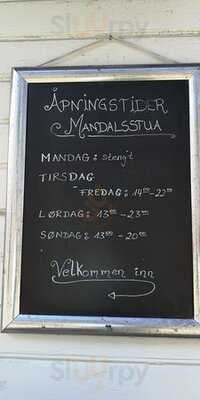 Sluurpy
ÅPNINGSTIDER
MANDALSSTUA
MANDAG: stengt
TIRSDAG
- FREDAG: 14⁰⁰-22⁰⁰
LØRDAG: 13⁰⁰-23⁰⁰
SØNDAG: 13⁰⁰-20⁰⁰
Velkommen inn
Sluurpy